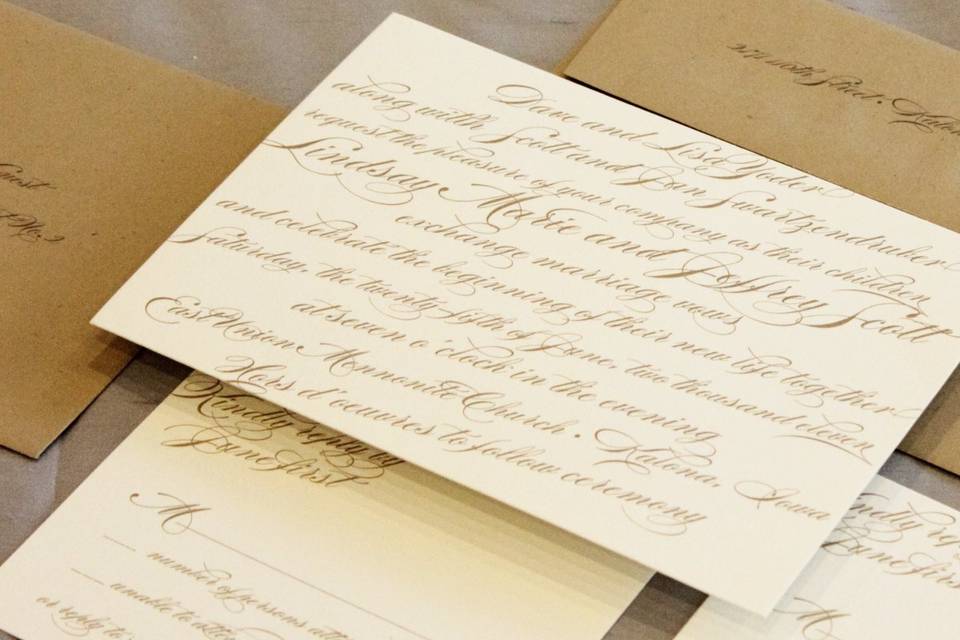 Dave and Lisa Yoder
along with Scott and Jan Swartzendruber
request the pleasure of your company as their children
Lindsay Marie and Jeffrey Scott
exchange marriage vows
and celebrate the beginning of their new life together
Saturday, the twenty-fifth of June, two thousand eleven
at seven o'clock in the evening
East Union Mennonite Church • Kalona, Iowa
Hors d'oeuvres to follow ceremony
Kindly reply by
June first
M
number of persons
unable to
as reply to
Street •
No. 2
Kindly
June first
M